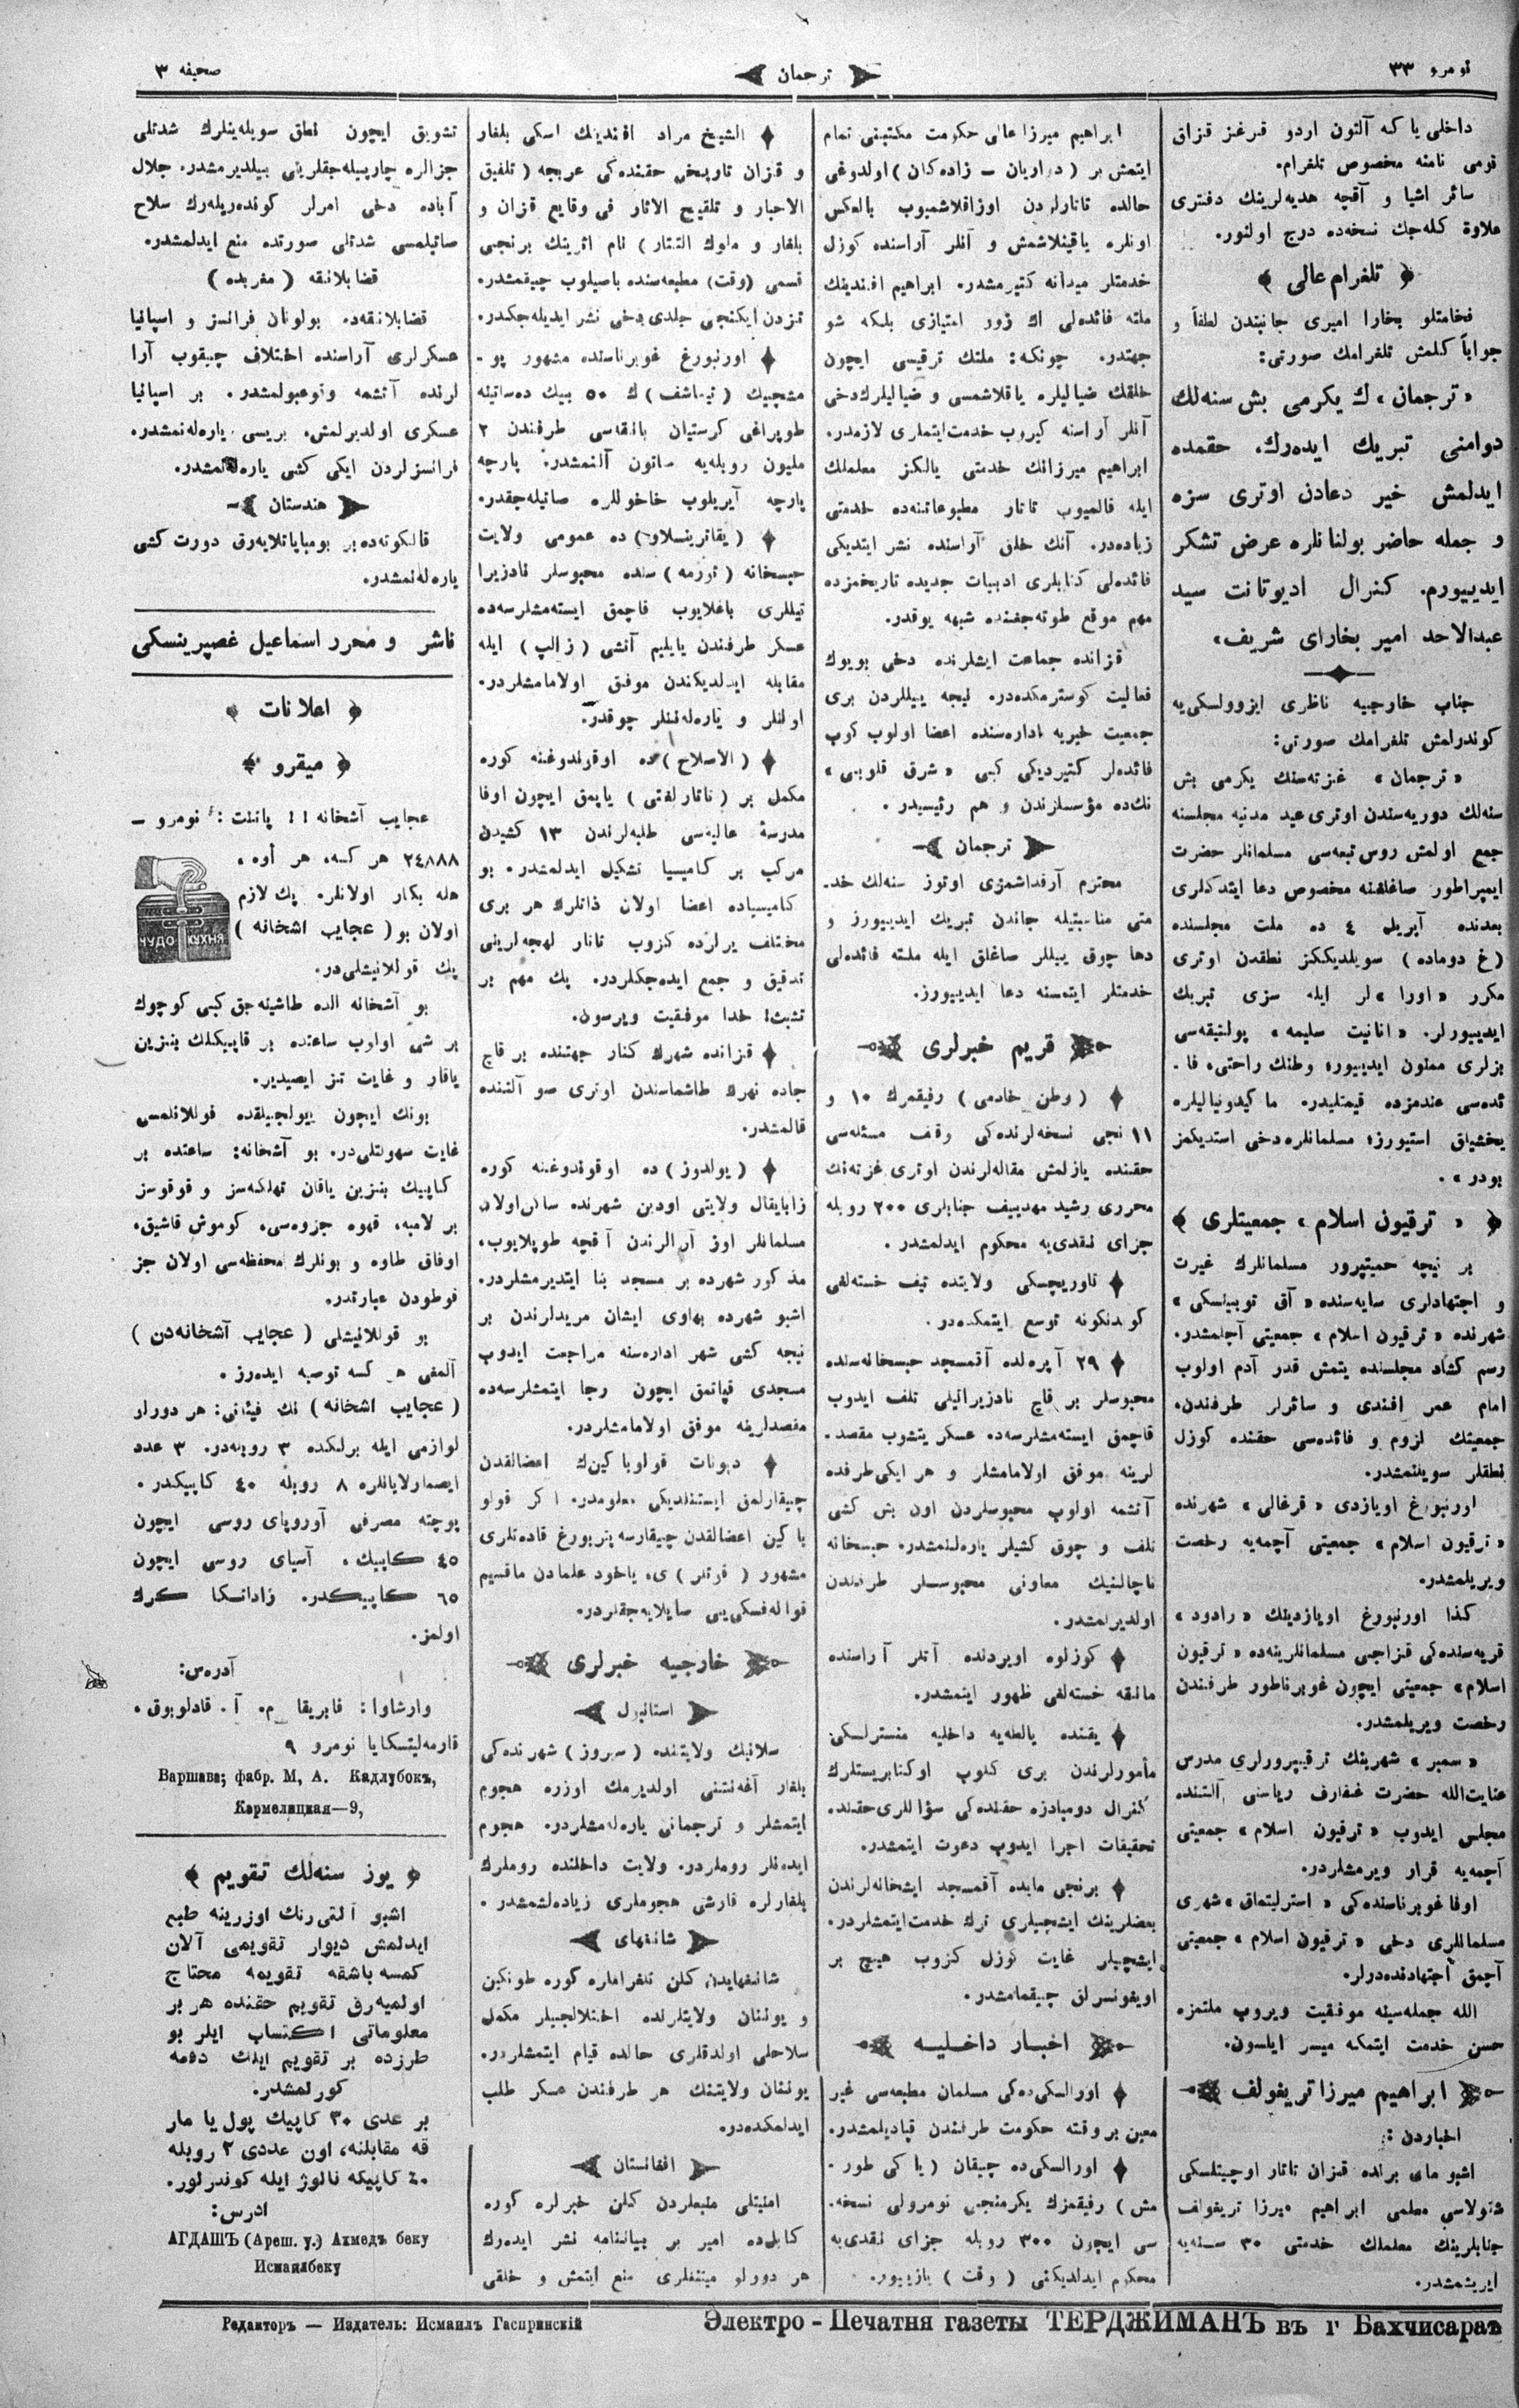 نومرو ٣٣
ترجمان
صحیفه ٣
داخلی یا که آلتون اردو قرغز قزاق
قومی نامنه مخصوص تلغرام.
سائر اشیا و آقچه هدیه‌لرینك دفتری
علاوۀ کله‌جك نسخه‌ده درج اولنور.
﴿ تلغرام عالی ﴾
فخامتلو بخارا امیری جانبندن لطفاً و
جواباً کلمش تلغرامك صورتی:
«ترجمان» ك یکرمی بش سنه‌لك
دوامنی تبریك ایده‌رك، حقمده
ایدلمش خیر دعادن اوتری سزه
و جمله حاضر بولنانلره عرض تشکر
ایدییورم. کنرال ادیوتانت سید
عبدالاحد امیر بخارای شریف»
جناب خارجیه ناظری ایزوولسکی‌یه
کوندرلمش تلغرامك صورتی:
«ترجمان» غزته‌سنك یکرمی بش
سنه‌لك دوریه‌سندن اوتری عید مدنیه مجلسنه
جمع اولمش روس تبعه‌سی مسلمانلر حضرت
ایمپراطور صاغلغنه مخصوص دعا ایتدکلری
بعدنده آبریلڭ ٤ ده ملت مجلسنده
(غ دوماده) سویلدیککز نطقدن اوتری
مکرر «اورا» لر ایله سزی تبریك
ایدییورلر. «انانیت سلیمه» پولتیقه‌سی
بزلری ممنون ایدییور؛ وطنك راحتی، فا-
ئده‌سی عندمزده قیمتلیدر. ماکیدونیالیلره
یخشیلق استیورز؛ مسلمانلره‌دخی استدیکمز
بودر».
﴿ «ترقیون اسلام» جمعیتلری ﴾
بر نیچه حمیتپرور مسلمانلرك غیرت
و اجتهادلری سایه‌سنده «آق توبینسکی»
شهرنده «ترقیون اسلام» جمعیتی آچلمشدر.
رسم کشاد مجلسنده یتمش قدر آدم اولوب
امام عمر افندی و سائرلر طرفندن،
جمعیتك لزوم و فائده‌سی حقنده کوزل
نطقلر سویلنمشدر.
اورنبورغ اویازدی «قرغالی» شهرنده
«ترقیون اسلام» جمعیتی آچمه‌یه رخصت
ویریلمشدر.
کذا اورنبورغ اویازدینك «رادود»
قریه‌سنده‌کی قزاجی مسلمانلرینه‌ده «ترقیون
اسلام» جمعیتی ایچون غوبرناطور طرفندن
رخصت ویریلمشدر.
«سمبر» شهرینك ترقیپرورلری مدرس
عنایت‌الله حضرت غفارف ریاستی آلتنده
مجلس ایدوب «ترقیون اسلام» جمعیتی
آچمه‌یه قرار ویرمشلردر.
اوفا غوبرناسنده‌کی «استرلیتماق» شهری
مسلمانلری دخی «ترقیون اسلام» جمعیتی
آچمق اجتهادنده‌درلر.
الله جمله‌سینه موفقیت ویروب ملتمزه
حسن خدمت ایتمکه میسر ایلسون.
ابراهیم میرزا تریغولف
اخباردن:
اشبو مای برلده قزان تاتار اوچیتلسکی
شقولاسی معلمی ابراهیم میرزا تریغولف
جنابلرینك معلملك خدمتی ٣٠ سنه‌یه
ایریشمشدر.
ابراهیم میرزا عالی حکومت مکتبنی تمام
ایتمش بر (دواریان – زاده‌کان) اولدوغی
حالده تاتارلردن اوزاقلاشمیوب بالعکس
اونلره یاقینلاشمش و آنلر آراسنده کوزل
خدمتلر میدانه کتیرمشدر. ابراهیم افندینك
ملته فائده‌لی اك زور امتیازی بلکه شو
جهتدر. چونکه: ملتك ترقیسی ایچون
خلقك ضیالیلره یاقلاشمسی و ضیالیلرك‌دخی
آنلر آراسنه کیروب خدمت‌ایتملری لازمدر.
ابراهیم میرزانك خدمتی یالکز معلملك
ایله قالمیوب تاتار مطبوعاتنه‌ده خدمتی
زیاده‌در. آنك خلق آراسنده نشر ایتدیکی
فائده‌لی کتابلری ادبیات جدیده تاریخمزده
مهم موقع طوته‌جغنده شبهه یوقدر.
قزانده جماعت ایشلرنده دخی بویوك
فعالیت کوسترمکده‌در. نیجه ییللردن بری
جمعیت خیریه اداره‌سنده اعضا اولوب کوپ
فائده‌لر کتیردیکی کبی «شرق قلوبی»
نك‌ده مؤسسلرندن و هم رئیسیدر.
ترجمان
محترم آرقداشمزی اوتوز سنه‌لك خد-
متی مناسبتیله جاندن تبریك ایدییورز و
دها چوق ییللر صاغلق ایله ملته فائده‌لی
خدمتلر ایتمسنه دعا ایدییورز.
قریم خبرلری
(وطن خادمی) رفیقمزك ١٠ و
١١ نجی نسخه‌لرنده‌کی وقف مسئله‌سی
حقنده یازلمش مقاله‌لرندن اوتری غزته‌نك
محرری رشید مهدییف جنابلری ٢٠٠ روبله
جزای نقدی‌یه محکوم ایدلمشدر.
تاوریچسکی ولایتنده تیف خسته‌لغی
کوندنکونه توسع ایتمکده‌در.
٢٩ آپره‌لده آقمسجد حبسخانه‌سنده
محبوسلر بر قاچ نادزیراتیلی تلف ایدوب
قاچمق ایسته‌مشلرسه‌ده عسکر یتشوب مقصد-
لرینه موفق اولامامشلر و هر ایکی طرفده
آتشمه اولوب محبوسلردن اون بش کشی
تلف و چوق کشیلر یاره‌لنمشدر. حبسخانه
ناچالنیك معاونی محبوسلر طرفندن
اولدیرلمشدر.
کوزلوه اویزدنده آتلر آراسنده
مانقه خسته‌لغی ظهور ایتمشدر.
یقنده یالطه‌یه داخلیه منسترلسکی
مأمورلرندن بری کلوپ اوکتابریستلرك
کنرال دومبادزه حقنده‌کی سؤاللری‌حقنده
تحقیقات اجرا ایدوب دعوت ایتمشدر.
برنجی مایده آقمسجد ایشخانه‌لرندن
بعضلرینك ایشچیلری ترك خدمت‌ایتمشلردر.
ایشچیلر غایت کوزل کزوب هیچ بر
اویغونسزلق چیقمامشدر.
اخبار داخلیه
اورالسکی‌ده‌کی مسلمان مطبعه‌سی غیر
معین بر وقته حکومت طرفندن قپادیلمشدر.
اورالسکی‌ده چیقان (یا کی طور-
مش) رفیقمزك یکرمنجی نومرولی نسخه-
سی ایچون ٣٠٠ روبله جزای نقدی‌یه
محکوم ایدلدیکنی (وقت) یازییور.
الشیخ مراد افندینك اسکی بلغار
و قزان تاریخی حقنده‌کی عربجه (تلفیق
الاخبار و تلقیح الاثار فی وقایع قزان و
بلغار و ملوك التتار) نام اثرینك برنجی
قسمی (وقت) مطبعه‌سنده باصیلوب چیقمشدر.
تزدن ایکنجی جلدی دخی نشر ایدیله‌جکدر.
اورنبورغ غوبرناسنده مشهور پو-
مشچیك (تیماشف) ك ٥٠ بیك ده‌ساتینه
طوپراغی کرستیان بانقاسی طرفندن ٢
ملیون روبله‌یه صاتون آلنمشدر. پارچه
پارچه آیریلوب خاخوللره صاتیله‌جقدر.
(یقاترینسلاو) ده عمومی ولایت
حبسخانه (تورمه) سنده محبوسلر نادزیرا
تیللری باغلایوب قاچمق ایسته‌مشلرسه‌ده
عسکر طرفندن یایلیم آتشی (زالپ) ایله
مقابله ایدلدیکندن موفق اولامامشلردر.
اولنلر و یاره‌لنلر چوقدر.
(الاصلاح) ده اوقوندوغنه کوره
مکمل بر (تاتار لغتی) یاپمق ایچون اوفا
مدرسۀ عالیه‌سی طلبه‌لرندن ١٣ کشیدن
مرکب بر کامیسیا تشکیل ایدلمشدر. بو
کامیسیاده اعضا اولان ذاتلرك هر بری
مختلف یرلرده کزوب تاتار لهجه‌لرینی
تدقیق و جمع ایده‌جکلردر. پك مهم بر
تشبث! خدا موفقیت ویرسون.
قزانده شهرك کنار جهتنده بر قاچ
جاده نهرك طاشماسندن اوتری صو آلتنده
قالمشدر.
(یولدوز) ده اوقوندوغنه کوره
زابایقال ولایتی اودین شهرنده ساکن‌اولان
مسلمانلر اوز آرالرندن آقچه طوپلایوب،
مذکور شهرده بر مسجد بنا ایتدیرمشلردر.
اشبو شهرده بهاوی ایشان مریدلرندن بر
نیجه کشی شهر اداره‌سنه مراجعت ایدوپ
مسجدی قپاتمق ایچون رجا ایتمشلرسه‌ده
مقصدلرینه موفق اولامامشلردر.
دپوتات قولوباکین‌ك اعضالقدن
چیقارلمق ایستنلدیکی معلومدر. اکر قولو
باکین اعضالقدن چیقارسه پتربورغ قاده‌تلری
مشهور (قوتلر) ی، یاخود علمادن ماقسیم
قواله‌فسکی‌یی صایلایه‌جقلردر.
خارجیه خبرلری
استانبول
سلانیك ولایتنده (سیروز) شهرنده‌کی
بلغار آغه‌نتنی اولدیرمك اوزره هجوم
ایتمشلر و ترجمانی یاره‌له‌مشلردر. هجوم
ایده‌نلر روملردر. ولایت داخلنده روملرك
بلغارلره قارشی هجوملری زیاده‌لشمشدر.
شانغهای
شانغهایدن کلن تلغرافلره کوره طونکین
و یوننان ولایتلرنده اختلالجیلر مکمل
سلاحلی اولدقلری حالده قیام ایتمشلردر.
یوننان ولایتنك هر طرفندن عسکر طلب
ایدلمکده‌در.
افغانستان
امنیتلی منبعلردن کلن خبرلره کوره
کابل‌ده امیر بر بیاننامه نشر ایده‌رك
هر دورلو میتنغلری منع ایتمش و خلقی
تشویق ایچون نطق سویله‌ینلرك شدتلی
جزالره چارپیله‌جقلرینی بیلدیرمشدر. جلال
آباده دخی امرلر کوندریله‌رك سلاح
صاتیلمسی شدتلی صورتده منع ایدلمشدر.
قضابلانقه (مغربده)
قضابلانقه‌ده بولونان فرانسز و اسپانیا
عسکرلری آراسنده اختلاف چیقوب آرا
لرنده آتشمه وقوعبولمشدر. بر اسپانیا
عسکری اولدیرلمش، بریسی یاره‌له‌نمشدر.
فرانسزلردن ایکی کشی یاره‌له‌نمشدر.
هندستان
قالکوته‌ده بر بومبا پاتلایه‌رق دورت کشی
یاره‌له‌نمشدر.
ناشر و محرر اسماعیل غصپرینسکی
﴿ اعلانات ﴾
﴿ میقرو ﴾
عجایب آشخانه !! پاتنت: نومرو –
٢٤٨٨٨ هر کسه، هر أوه،
هله بکار اولانلره پك لازم
اولان بو (عجایب اشخانه)
پك قوللانیشلی‌در.
ЧУДО КУХНЯ
بو آشخانه الده طاشینه‌جق کبی کوچوك
بر شی اولوب ساعتده بر قاپیکلك بنزین
یاقار و غایت تز ایصیدیر.
بونك ایچون یولجیلقده قوللانلمسی
غایت سهولتلی‌در. بو آشخانه: ساعتده بر
کاپیك بنزین یاقان تهلکه‌سز و قوقوسز
بر لامبه، قهوه جزوه‌سی، کوموش قاشیق،
اوفاق طاوه و بونلرك محفظه‌سی اولان جز
فوطودن عبارتدر.
بو قوللانیشلی (عجایب آشخانه‌دن)
آلمغی هر کسه توصیه ایده‌رز.
(عجایب اشخانه) نك فیئاتی: هر دورلر
لوازمی ایله برلکده ٣ روبله‌در. ٣ عدد
ایصمارلایانلره ٨ روبله ٤٠ کاپیکدر.
پوچته مصرفی آوروپای روسی ایچون
٤٥ کاپیك، آسیای روسی ایچون
٦٥ کاپیکدر. زاداتکا کرك
اولمز.
آدره‌س:
وارشاوا: فابریقا م. آ. قادلوبوق،
قارمه‌لیتسکایا نومرو ٩
Варшава; фабр. М, А. Кадлубокъ,
Кармелицкая—9,
﴿ یوز سنه‌لك تقویم ﴾
اشبو آلتی رنك اوزرینه طبع
ایدلمش دیوار تقویمی آلان
کمسه باشقه تقویمه محتاج
اولمیه‌رق تقویم حقنده هر بر
معلوماتی اکتساب ایلر بو
طرزده بر تقویم ایلك دفعه
کورلمشدر.
بر عددی ٣٠ کاپیك پول یا مار
قه مقابلنه، اون عددی ٢ روبله
٤٠ کاپیکه نالوژ ایله کوندرلور.
ادرس:
АГДАШЪ (Ареш. у.) Ахмедъ беку
Исмаилбеку
Редакторъ — Издатель: Исмаилъ Гаспринскій
Электро - Печатня газеты ТЕРДЖИМАНЪ въ г Бахчисараѣ